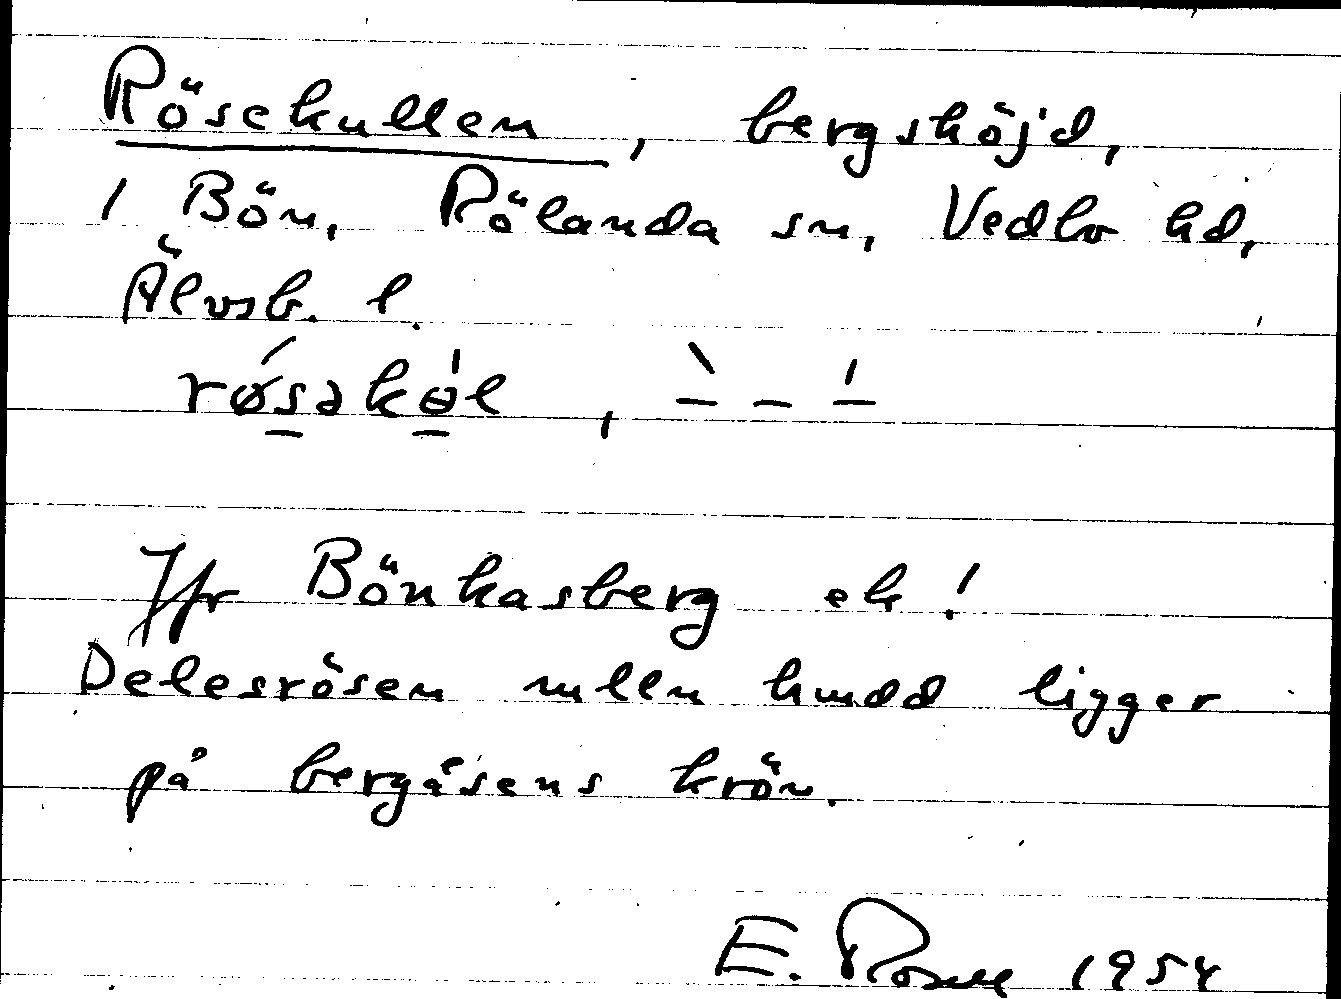 Rösekullen, bergshöjd,
1 Bön, Rölanda sn, Vedbo hd,
Älvsb. l.
røsəkøl,
Jfr Bönkasberg ek!
Delesrösen mlln hmdd ligger
på bergåsens krön.
E. 1954